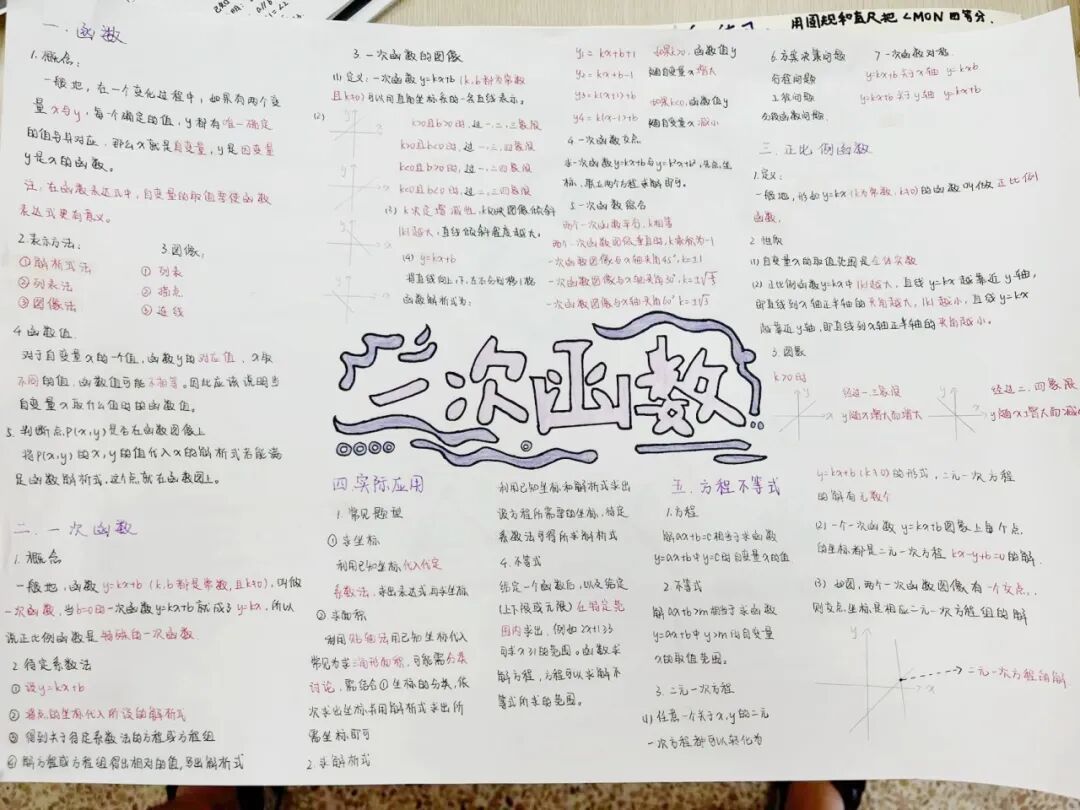 用圆规和直尺把∠MON四等分.
一.函数
1.概念:
一般地,在一个变化过程中,如果有两个变
量x与y,每一个确定的值,y都有唯一确定
的值与其对应,那么x就是自变量,y是因变量
y是x的函数。
注:在函数表达式中,自变量的取值要使函数
表达式更有意义。
2.表示方法:
①解析式法
②列表法
③图像法
3.图像:
①列表
②描点
③连线
4.函数值.
对于自变量x的一个值,函数y的对应值,x取
不同的值,函数值可能不相等。因此应该说明当
自变量x取什么值时的函数值。
5.判断点P(x,y)是否在函数图像上
将P(x,y)的x,y的值代入x的解析式若能满
足函数解析式,这个点就在函数图上。
二.一次函数
1.概念
一般地,函数y=kx+b(k,b都是常数,且k≠0),叫做
一次函数,当b=0时一次函数y=kx+b就成了y=kx,所以
说正比例函数是特殊的一次函数.
2.待定系数法
①设y=kx+b
②将点的坐标代入所设的解析式
③得到关于待定系数法的方程或方程组
④解方程或方程组得出相对的值,写出解析式
3.一次函数的图像
(1)定义:一次函数y=kx+b(k,b都为常数
且k≠0)可以用直角坐标系的一条直线表示。
(2)
k>0且b>0时,过一.二.三象限
k>0且b<0时,过一.三.四象限
k<0且b>0时,过一.二.四象限
k<0且b<0时,过二.三.四象限
(3)k决定增减性,k反映图像倾斜
|k|越大,直线倾斜程度越大。
(4)y=kx+b
将直线向上.下.左.右分别移1格
函数解析式为:
y1=kx+b+1
y2=kx+b-1
y3=k(x+1)+b
y4=k(x-1)+b
如果k>0,函数值y
随自变量x增大
如果k<0,函数值y
随自变量x减小
4.一次函数交点
5.一次函数综合
两个一次函数平行,k相等
两个一次函数图像垂直时,k乘积为-1
一次函数图像与x轴夹角45°,k=±1
一次函数图像与x轴夹角30°,k=±
一次函数图像与x轴夹角60°,k=±√3
6.方案决策问题
行程问题
工程问题
分段函数问题
7一次函数对称.
y=kx+b关于x轴
y=kx+b关于y轴
三.正比例函数
1.定义:
一般地,形如y=kx(k为常数,k≠0)的函数叫做正比例
函数.
2.性质
(1)自变量x的取值范围是全体实数
(2)正比例函数y=kx中|k|越大,直线y=kx越靠近y轴,
即直线到x轴正半轴的夹角越大,|k|越小,直线y=kx
越靠近y轴,即直线到x轴正半轴的夹角越小。
3.图数
k>0时
经过一.三象限
y随x增大而增大
经过二.四象限
y随x增大而减
一次函数
四.实际应用
1.常见题型
①求坐标
利用已知坐标,代入代定
系数法,求出表达式与求坐标
②求面积
利用 法用已知坐标代入
常见为求三角形面积,可能需分类
讨论,需结合①坐标的分类,依
次求出坐标并用解析式求出所
需坐标即可
2.求解析式
利用已知坐标和解析式求出
该方程所需要的坐标,待定
系数法可得所求解析式
4.不等式
给定一个函数后,以及给定
(上下限或无限)在特定范
围内求出,例如2x+1≥3
可求x≥1的范围。函数求
解方程,方程可以求解不
等式所求的范围。
五.方程不等式
1.方程
解ax+b=c相当于求函数
y=ax+b中y=c时自变量x的值
2.不等式
解ax+b>m相当于求函数
y=ax+b中y>m时自变量
x的取值范围。
3.二元一次方程
(1)任意一个关于x,y的二元
一次方程都可以转化为
y=kx+b(k≠0)的形式,二元一次方程
的解有无数个
(2)一个一次函数y=kx+b图数上每个点
的坐标都是二元一次方程kx-y+b=0的解.
(3)如图,两个一次函数图像有一个交点,
则交点坐标是相应二元一次方程组的解
y
x
二元一次方程的解